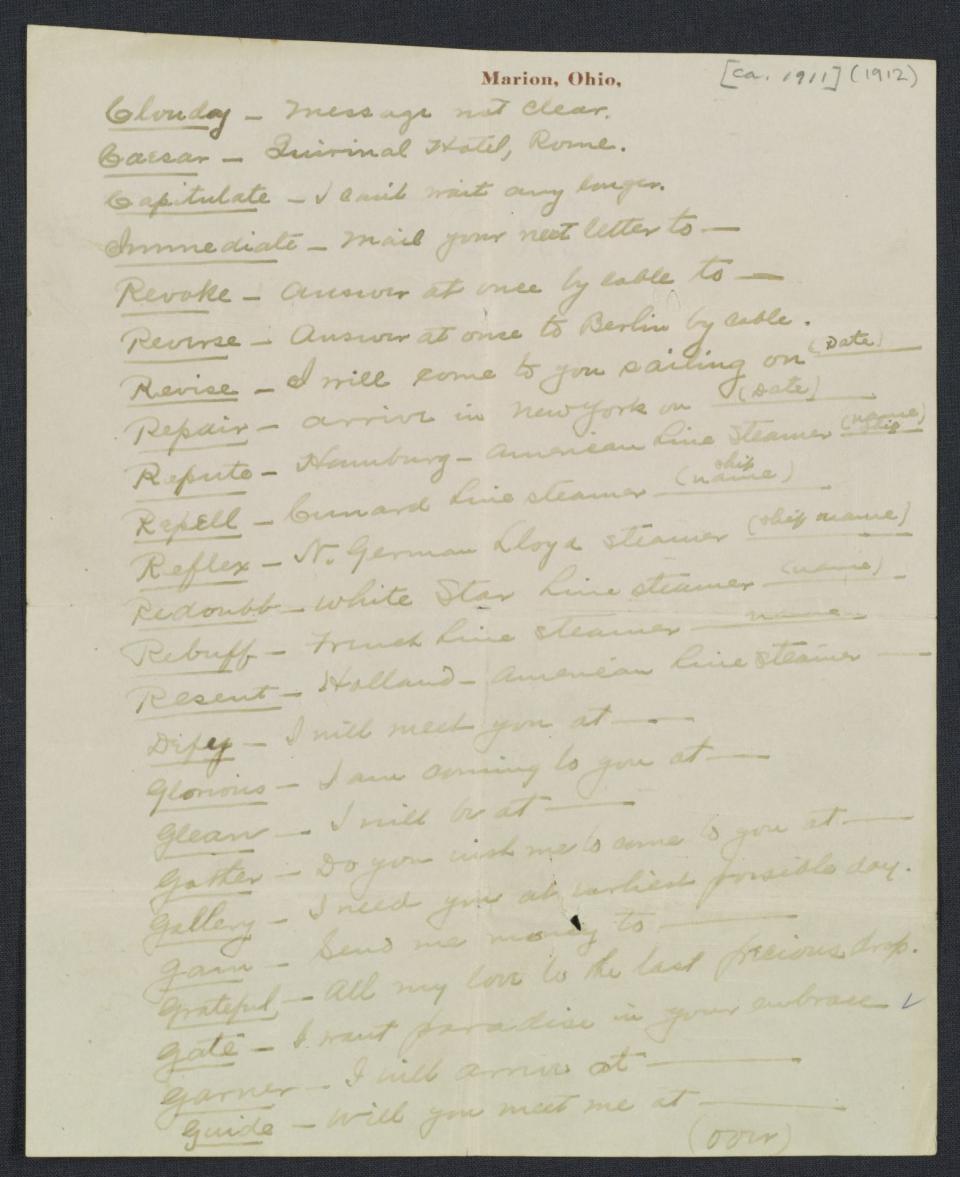 Marion, Ohio,
[ca. 1911] (1912)
Cloudy — Message not clear.
Caesar — Quirinal Hotel, Rome.
Capitulate — I can't wait any longer.
Immediate — Mail your next letter to —
Revoke — Answer at once by cable to —
Reverse — Answer at once to Berlin by cable.
Revise — I will come to you sailing on (Date)
Repair — arrive in New York on (Date)
Repute — Hamburg-American Line Steamer (name ship)
Repell — Cunard Line steamer (ship name)
Reflex — N. German Lloyd steamer (ship name)
Redoubt — White Star Line steamer (name)
Rebuff — French Line steamer name
Resent — Holland-American Line steamer —
Defy — I will meet you at —
Glorious — I am coming to you at —
Glean — I will be at —
Gather — Do you wish me to come to you at —
Gallery — I need you at earliest possible day.
Gain — Send me money to —
Grateful — All my love to the last precious drop.
Gate — I want paradise in your embrace
Garner — I will arrive at —
Guide — Will you meet me at —
(over)